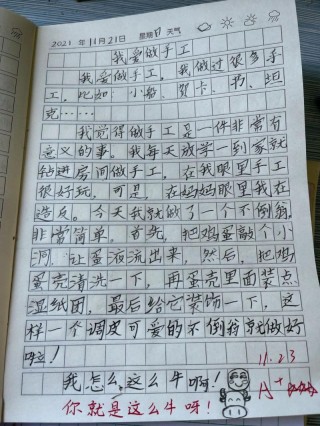 2021 年 11 月 21 日 星期日 天气
我爱做手工
我爱做手工，我做过很多手
工，比如：小船、贺卡、书、坦
克……
我觉得做手工是一件非常有
意义的事。我每天放学一到家就
钻进房间做手工，在我眼里手工
很好玩，可是，在妈妈眼里我在
造反。今天我就做了一个不倒翁，
非常简单。首先，把鸡蛋敲个小
洞，让蛋液流出来，然后，把鸡
蛋壳清洗一下，再蛋壳里面装点
湿纸团，最后给它装饰一下，这
样一个调皮可爱的不倒翁就做好
啦！
我怎么这么牛啊！
11.23
A+
你就是这么牛呀！